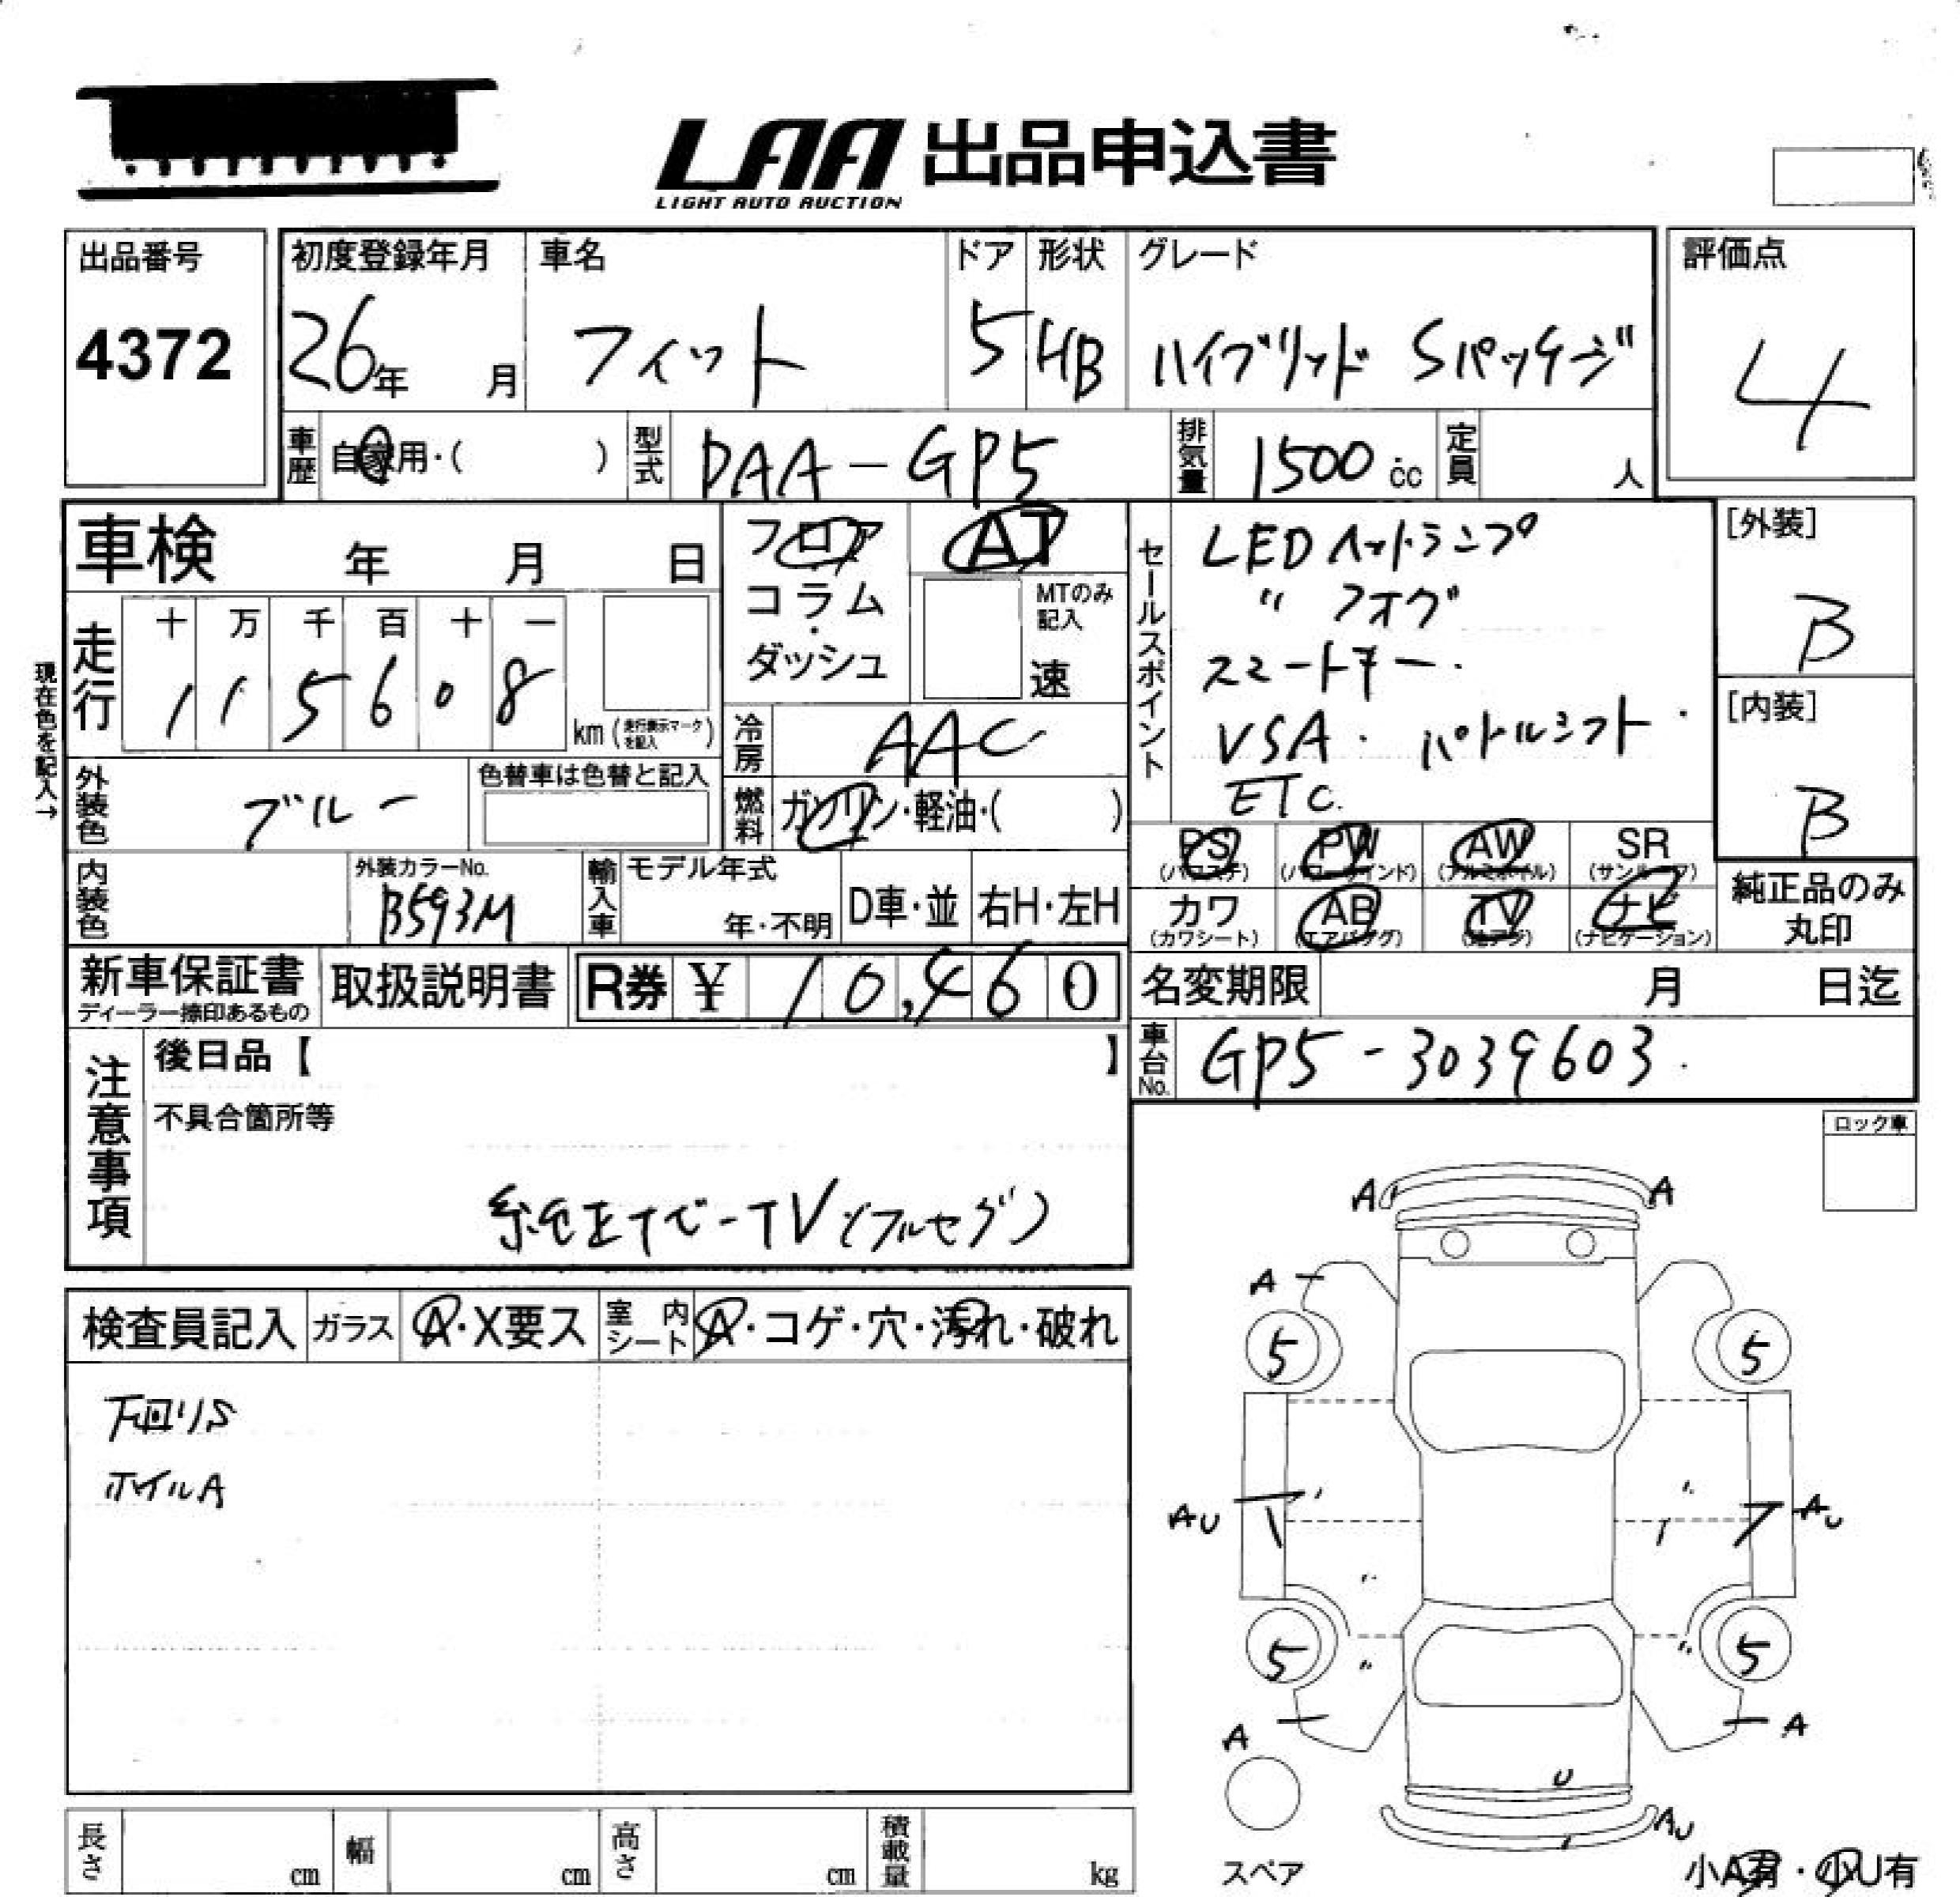 LAA 出品申込書
LIGHT AUTO AUCTION
出品番号
4372
初度登録年月 車名 ドア 形状 グレード 評価点
26年 月 フィット 5 HB ハイブリッド Sパッケージ 4
車歴 自家用・( ) 型式 DAA-GP5 排気量 1500 cc 定員 人
車検 年 月 日
フロア AT
コラム・
ダッシュ
MTのみ
記入
速
セールスポイント
LEDヘッドランプ
〃 フォグ
スマートキー.
VSA. パドルシフト.
ETC.
[外装]
B
[内装]
B
現在色を記入→
走行 十 万 千 百 十 一
1 1 5 6 0 8
km (走行表示マークを記入)
冷房 AAC
外装色 ブルー 色替車は色替と記入
燃料 ガソリン・軽油・( )
PS (パワステ) PW (パワーウインド) AW (アルミホイル) SR (サンルーフ)
カワ (カワシート) AB (エアバッグ) TV (地デジ) ナビ (ナビゲーション)
純正品のみ
丸印
内装色 外装カラーNo.
B593M
輸入車 モデル年式
年・不明 D車・並 右H・左H
新車保証書 取扱説明書 R券 ¥ 10,460
ディーラー捺印あるもの
名変期限 月 日迄
車台No. GP5-3039603.
注意事項
後日品【 】
不具合箇所等
純正ナビ-TV(フルセグ)
ロック車
検査員記入 ガラス A・X要ス 室内シート A・コゲ・穴・汚れ・破れ
下回りS
ホイルA
A A
A
5 5
AU AU
5 5
A A
U
AU
スペア
小A有・小U有
長さ cm 幅 cm 高さ cm 積載量 kg